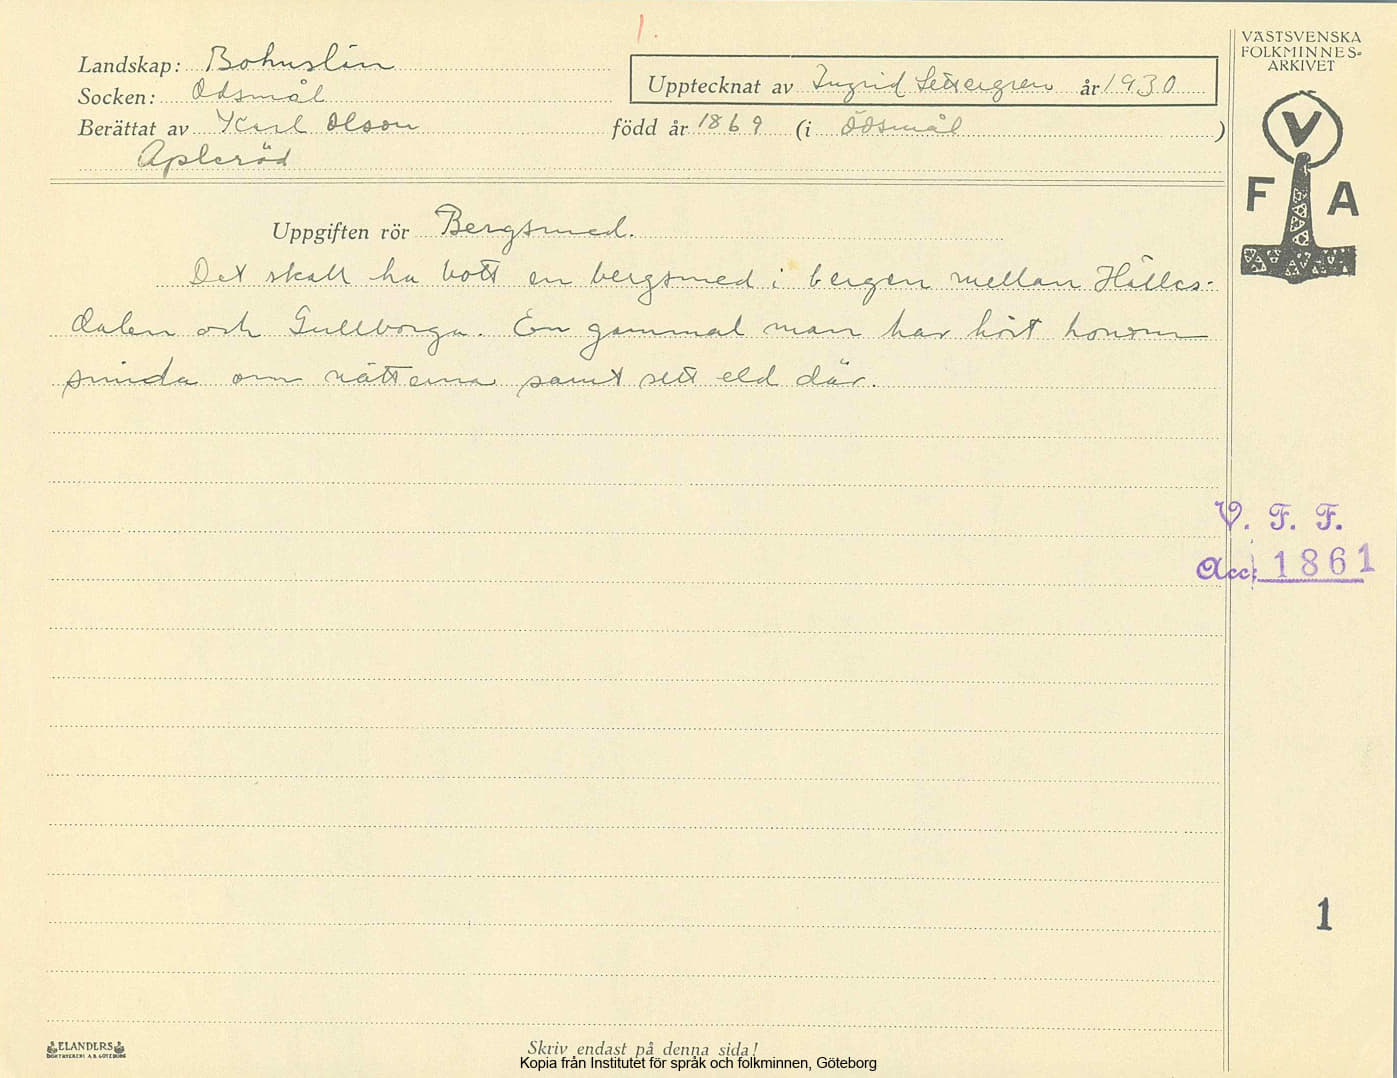 1.
VÄSTSVENSKA
FOLKMINNES-
ARKIVET
Landskap: Bohuslän
Upptecknat av Ingrid Settergren år 1930
Socken: Ödsmål
Berättat av Karl Olson född år 1869 (i Ödsmål )
Apleröd
V
F A
Uppgiften rör Bergsmed.
Det skall ha bott en bergsmed i bergen mellan Hälles-
dalen och Gullborga. En gammal man har hört honom
smida om nätterna samt sett eld där.
V. F. F.
Acc: 1861
1
ELANDERS
BOKTRYCKERI A.B. GÖTEBORG
Skriv endast på denna sida!
Kopia från Institutet för språk och folkminnen, Göteborg